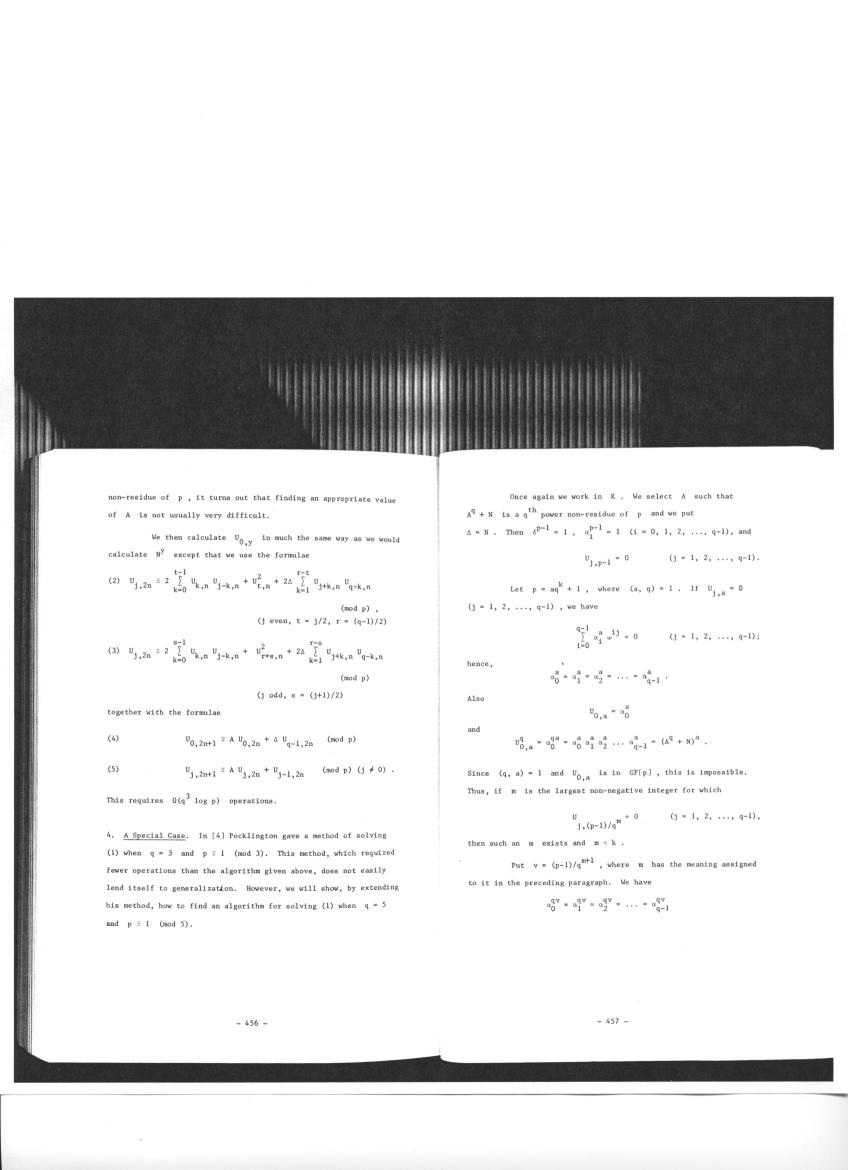 non-residue of p , it turns out that finding an appropriate value
of A is not usually very difficult.
We then calculate U_{0,y} in much the same way as we would
calculate N^y except that we use the formulae
(2) U_{j,2n} ≡ 2 ∑_{k=0}^{t-1} U_{k,n} U_{j-k,n} + U^2_{t,n} + 2Δ ∑_{k=1}^{r-t} U_{j+k,n} U_{q-k,n}
(mod p) ,
(j even, t = j/2, r = (q-1)/2)
(3) U_{j,2n} ≡ 2 ∑_{k=0}^{s-1} U_{k,n} U_{j-k,n} + U^2_{r+s,n} + 2Δ ∑_{k=1}^{r-s} U_{j+k,n} U_{q-k,n}
(mod p)
(j odd, s = (j+1)/2)
together with the formulae
(4) U_{0,2n+1} ≡ A U_{0,2n} + Δ U_{q-1,2n} (mod p)
(5) U_{j,2n+1} ≡ A U_{j,2n} + U_{j-1,2n} (mod p) (j ≠ 0) .
This requires O(q^3 log p) operations.
4. A Special Case. In [4] Pocklington gave a method of solving
(1) when q = 3 and p ≡ 1 (mod 3). This method, which required
fewer operations than the algorithm given above, does not easily
lend itself to generalization. However, we will show, by extending
his method, how to find an algorithm for solving (1) when q = 5
and p ≡ 1 (mod 5).
- 456 -
Once again we work in K . We select A such that
A^q + N is a q^{th} power non-residue of p and we put
Δ = N . Then δ^{p-1} = 1 , α_i^{p-1} = 1 (i = 0, 1, 2, ..., q-1), and
U_{j,p-1} = 0 (j = 1, 2, ..., q-1).
Let p = aq^k + 1 , where (a, q) = 1 . If U_{j,a} = 0
(j = 1, 2, ..., q-1) , we have
∑_{i=0}^{q-1} α_i^a ω^{ij} = 0 (j = 1, 2, ..., q-1);
hence,
α_0^a = α_1^a = α_2^a = ... = α_{q-1}^a .
Also
U_{0,a} = α_0^a
and
U_{0,a}^q = α_0^{qa} = α_0^a α_1^a α_2^a ... α_{q-1}^a = (A^q + N)^a .
Since (q, a) = 1 and U_{0,a} is in GF[p] , this is impossible.
Thus, if m is the largest non-negative integer for which
U_{j,(p-1)/q^m} = 0 (j = 1, 2, ..., q-1),
then such an m exists and m < k .
Put v = (p-1)/q^{m+1} , where m has the meaning assigned
to it in the preceding paragraph. We have
α_0^{qv} = α_1^{qv} = α_2^{qv} = ... = α_{q-1}^{qv}
- 457 -